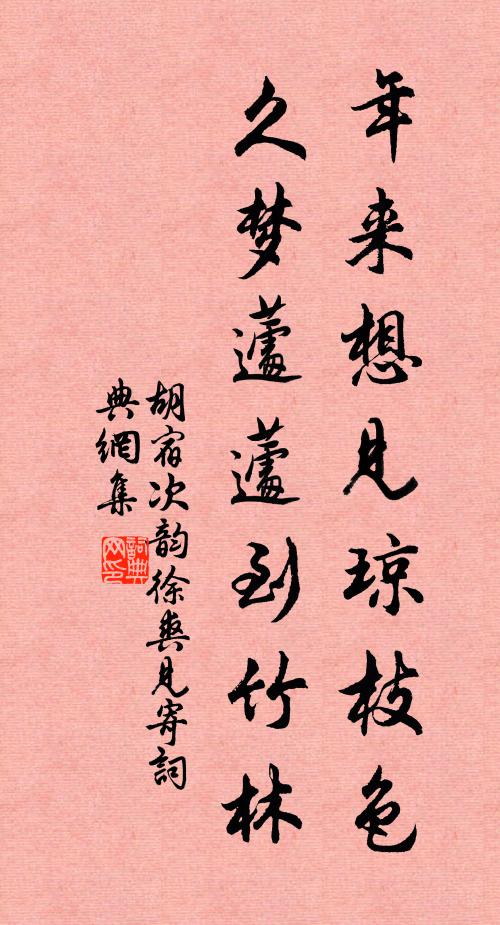 年来想見琼枝色
久梦蘧蘧到竹林
胡宿次韵徐奭見寄詞
典網集
詞典
网印